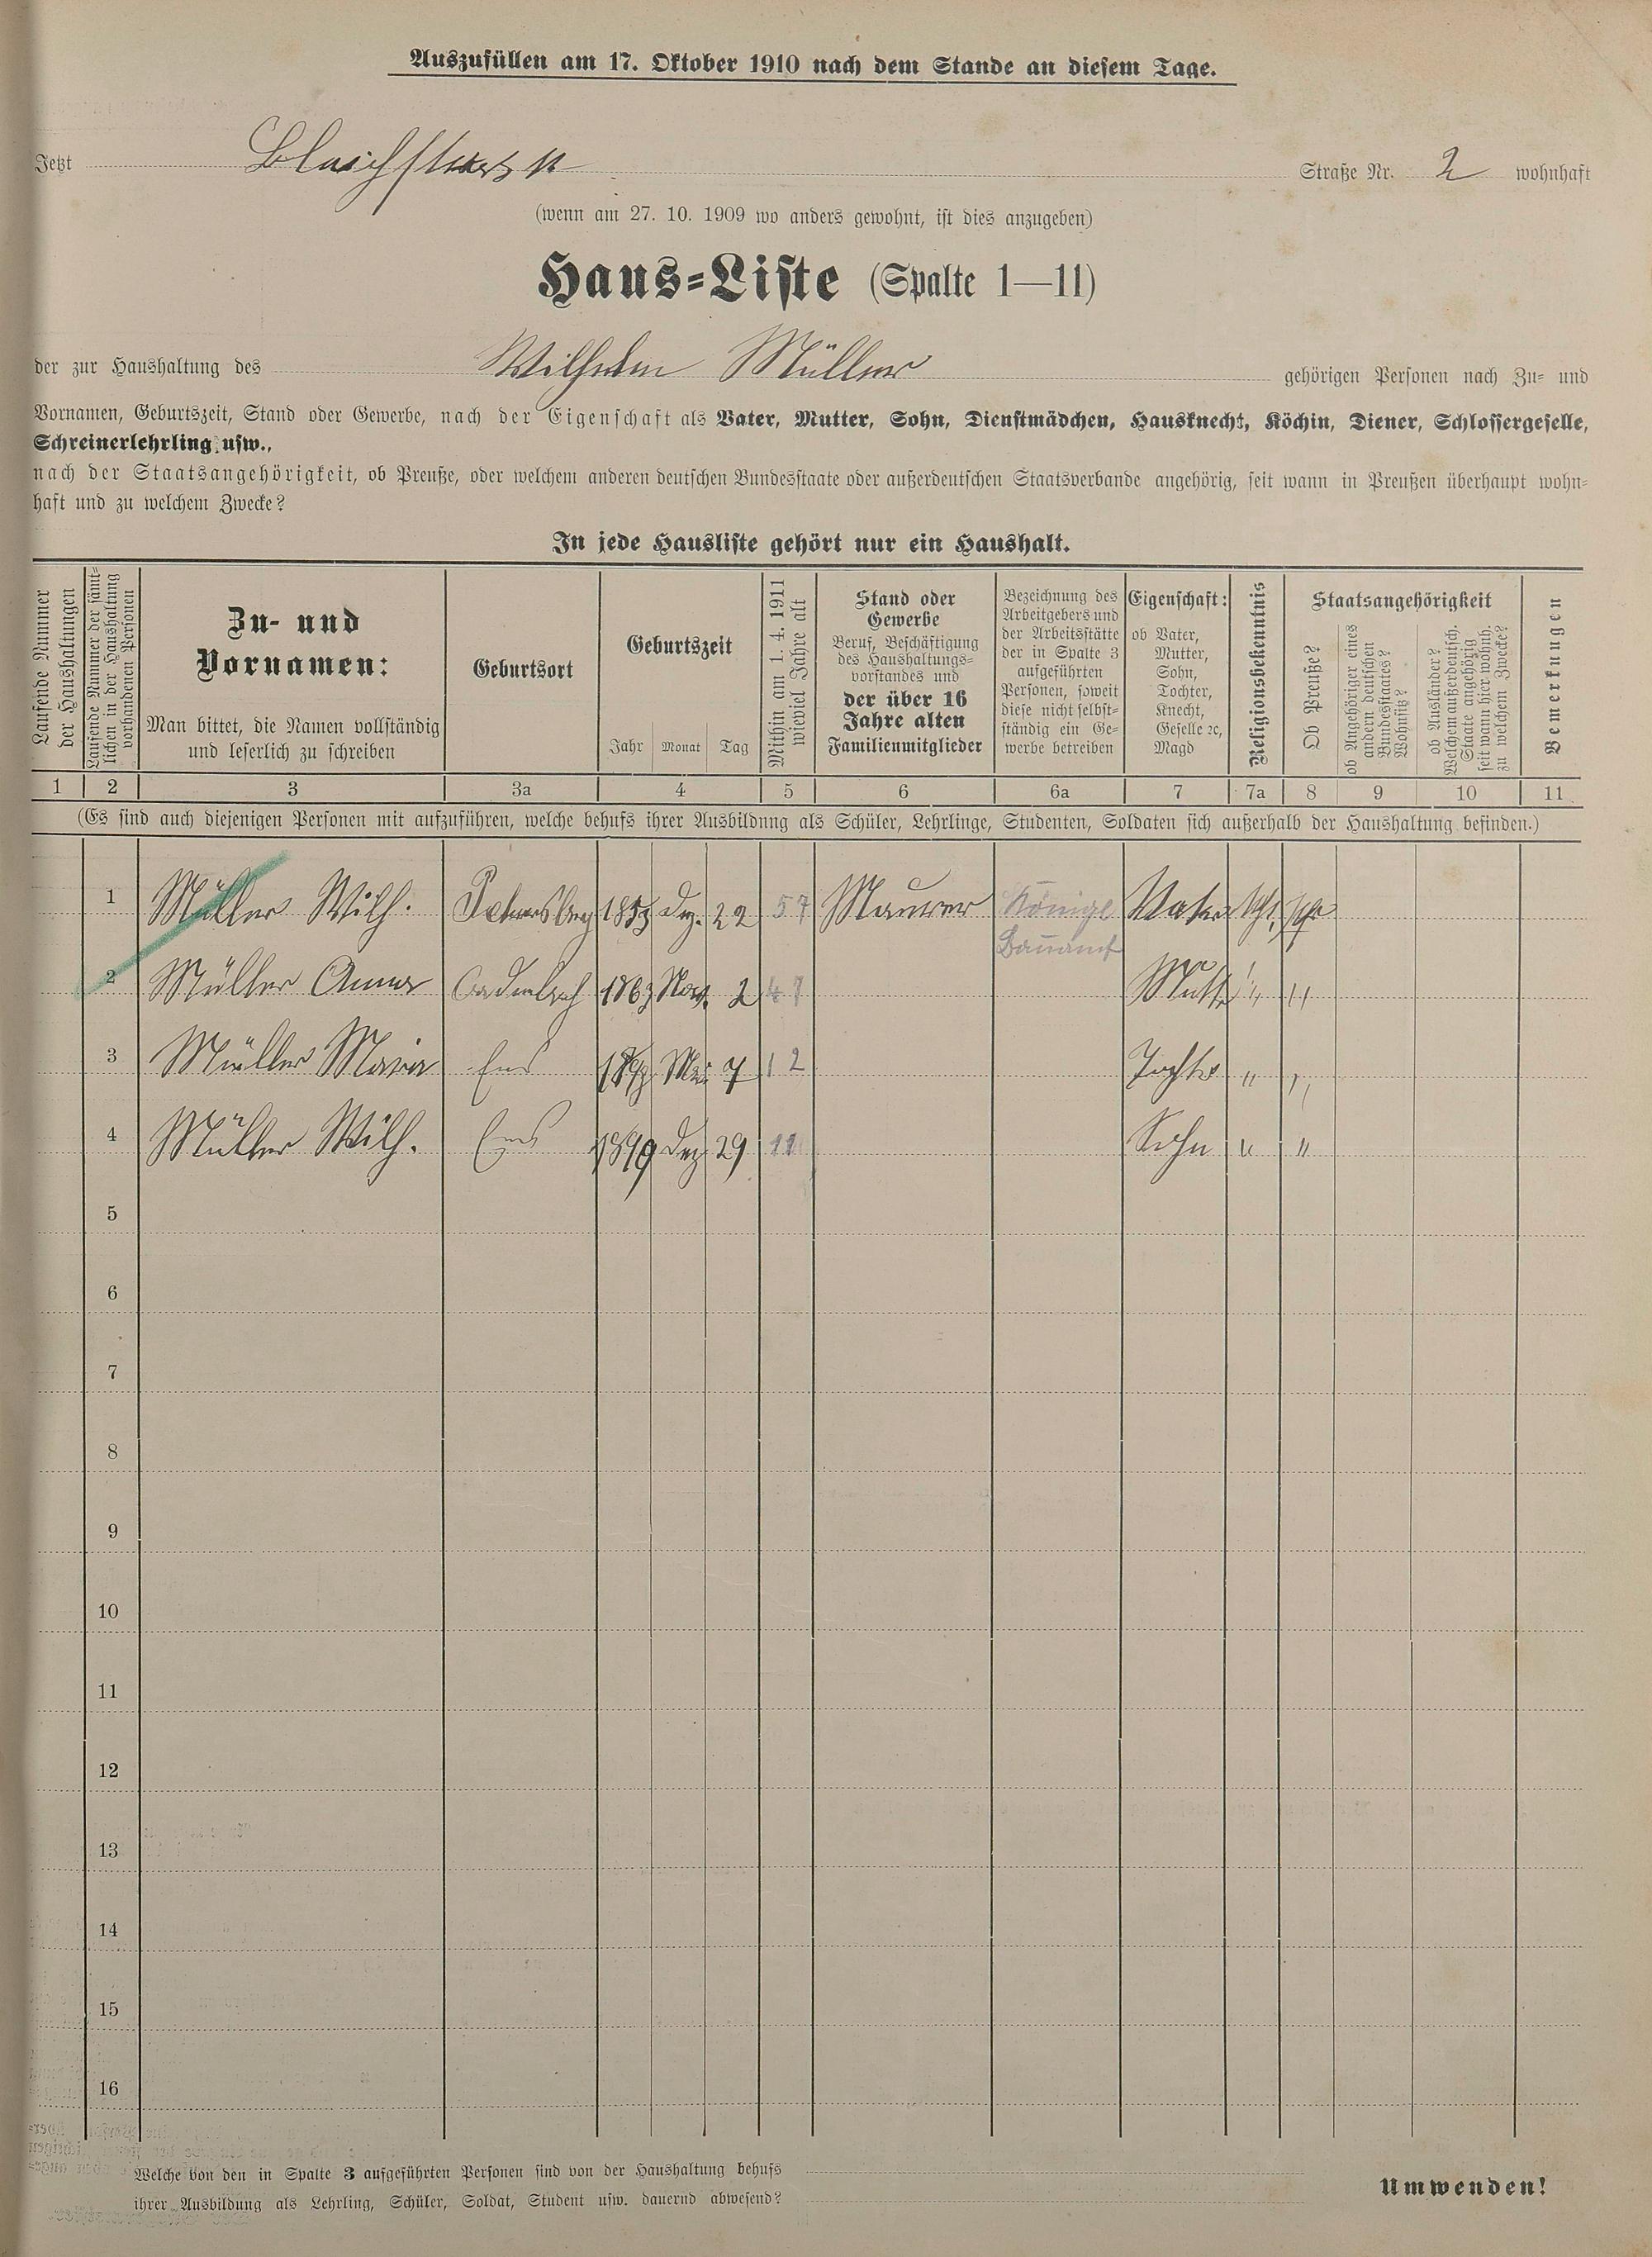 Auszufüllen am 17. Oktober 1910 nach dem Stande an diesem Tage.
Jetzt Straße Nr. 2 wohnhaft
(wenn am 27. 10. 1909 wo anders gewohnt, ist dies anzugeben)
Haus-Liste (Spalte 1—11)
der zur Haushaltung des Wilhelm Müller gehörigen Personen nach Zu- und
Vornamen, Geburtszeit, Stand oder Gewerbe, nach der Eigenschaft als Vater, Mutter, Sohn, Dienstmädchen, Hausknecht, Köchin, Diener, Schlossergeselle,
Schreinerlehrling usw.,
nach der Staatsangehörigkeit, ob Preuße, oder welchem anderen deutschen Bundesstaate oder außerdeutschen Staatsverbande angehörig, seit wann in Preußen überhaupt wohn-
haft und zu welchem Zwecke?
In jede Hausliste gehört nur ein Haushalt.
Laufende Nummer
der Haushaltungen
Laufende Nummer der sämt-
lichen in der Haushaltung
vorhandenen Personen
Zu- und
Vornamen:
Man bittet, die Namen vollständig
und leserlich zu schreiben
Geburtsort
Geburtszeit
Jahr Monat Tag
Mithin am 1. 4. 1911
wieviel Jahre alt
Stand oder
Gewerbe
Beruf, Beschäftigung
des Haushaltungs-
vorstandes und
der über 16
Jahre alten
Familienmitglieder
Bezeichnung des
Arbeitgebers und
der Arbeitsstätte
der in Spalte 3
aufgeführten
Personen, soweit
diese nicht selbst-
ständig ein Ge-
werbe betreiben
Eigenschaft:
ob Vater,
Mutter,
Sohn,
Tochter,
Knecht,
Geselle ꝛc,
Magd
Religionsbekenntnis
Staatsangehörigkeit
Ob Preuße?
ob Angehöriger eines
andern deutschen
Bundesstaates?
Wohnsitz?
ob Ausländer?
Welchem außerdeutsch.
Staate angehörig
seit wann hier wohnh.
zu welchem Zwecke?
Bemerkungen
1 2 3 3a 4 5 6 6a 7 7a 8 9 10 11
(Es sind auch diejenigen Personen mit aufzuführen, welche behufs ihrer Ausbildung als Schüler, Lehrlinge, Studenten, Soldaten sich außerhalb der Haushaltung befinden.)
1 Müller Wilh. 1853 Dez. 22 57 Maurer Königl Vater
Bauamt
2 Müller Anna Cadenbach 1863 Nov. 2 47 " "
3 Müller Maria Ems Mai 7 12 Tochter " "
4 Müller Wilh. Ems 1899 Dez 29 11 Sohn " "
5
6
7
8
9
10
11
12
13
14
15
16
Welche von den in Spalte 3 aufgeführten Personen sind von der Haushaltung behufs
ihrer Ausbildung als Lehrling, Schüler, Soldat, Student usw. dauernd abwesend?
Umwenden!